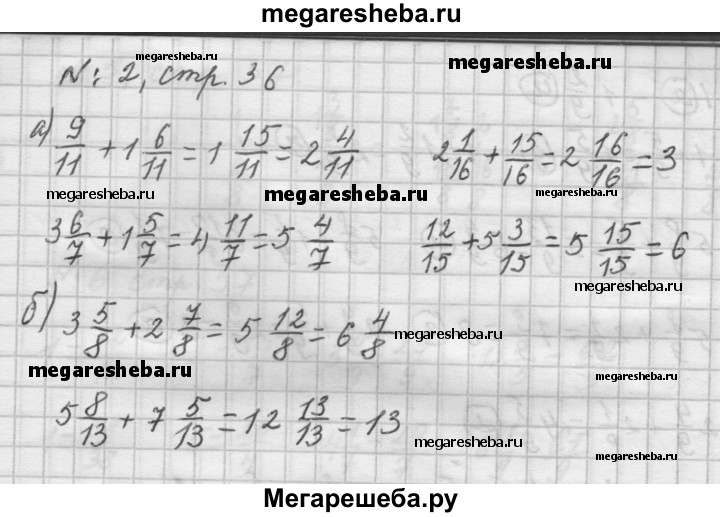 megaresheba.ru
№: 2, стр. 36
megaresheba.ru
megaresheba.ru
а) 9/11 + 1 6/11 = 1 15/11 = 2 4/11    2 1/16 + 15/16 = 2 16/16 = 3
megaresheba.ru megaresheba.ru megaresheba.ru
3 6/7 + 1 5/7 = 4 11/7 = 5 4/7    12/15 + 5 3/15 = 5 15/15 = 6
megaresheba.ru
б) 3 5/8 + 2 7/8 = 5 12/8 = 6 4/8
megaresheba.ru
megaresheba.ru
megaresheba.ru
5 8/13 + 7 5/13 = 12 13/13 = 13
megaresheba.ru
megaresheba.ru
Мегарешеба.ру